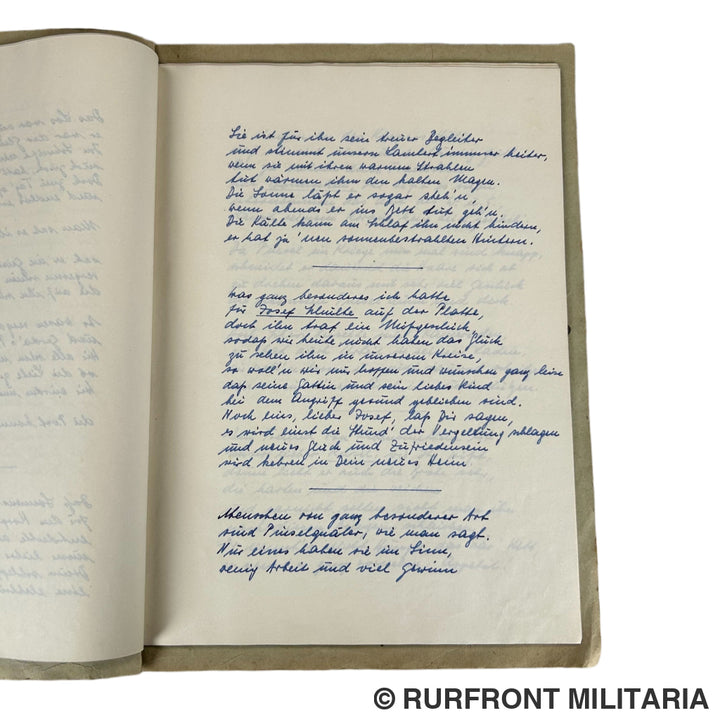 Sie ist für ihn sein treuer Begleiter
und stimmt unsern Lambert immer heiter,
wenn sie mit ihren warmen Strahlen
tut wärmen ihm den kalten Magen.
Die Sonne läßt er sogar steh'n,
wenn abends er ins Bett tut geh'n.
Die Kälte kann am Schlaf ihn nicht hindern,
er hat ja 'nen sonnenbestrahlten Hintern.
Was ganz besonderes ich hatte
für Josef auf der Platte,
doch ihn traf ein Mißgeschick
sodaß wir heute nicht haben das Glück
zu sehen ihn in unserem Kreise,
so woll'n wir uns hoffen und wünschen ganz leise
daß seine Gattin und sein liebes Kind
bei dem Angriff gesund geblieben sind.
Noch eins, lieber Josef, laß Dir sagen,
es wird einst die Stund' der Vergeltung schlagen
und neues Glück und Zufriedensein
wird kehren in Dein neues Heim
Menschen von ganz besonderer Art
sind Pinselquäler, wie man sagt.
Nur eines haben sie im Sinn,
wenig Arbeit und viel Gewinn
© RURFRONT MILITARIA